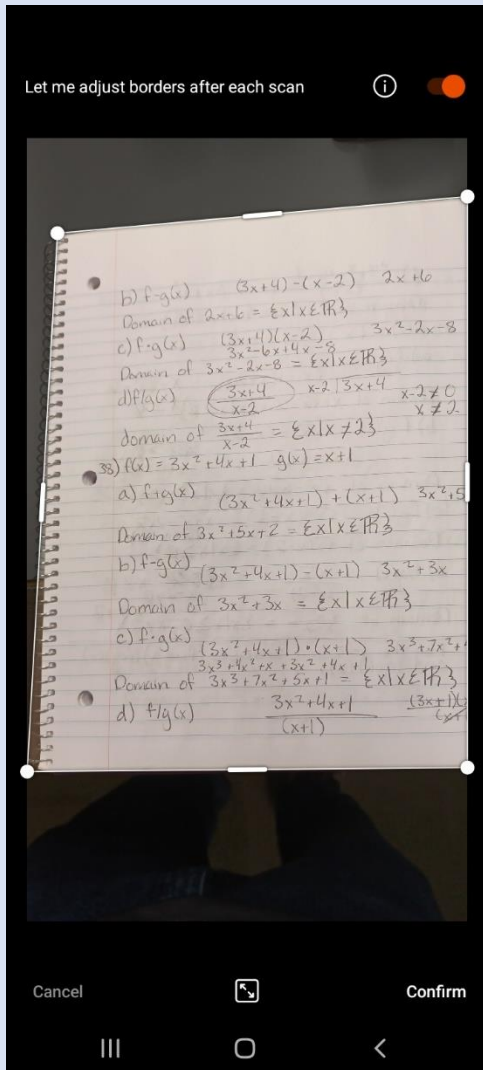 Let me adjust borders after each scan
b) f-g(x) (3x+4)-(x-2) 2x+6
Domain of 2x+6 = {x|x∈ℝ}
c) f·g(x) (3x+4)(x-2) 3x²-2x-8
3x²-6x+4x-8
Domain of 3x²-2x-8 = {x|x∈ℝ}
d) f/g(x) 3x+4/x-2 x-2|3x+4 x-2≠0
x≠2
domain of 3x+4/x-2 = {x|x≠2}
38) f(x) = 3x²+4x+1 g(x)=x+1
a) f+g(x) (3x²+4x+1)+(x+1) 3x²+5
Domain of 3x²+5x+2 = {x|x∈ℝ}
b) f-g(x) (3x²+4x+1)-(x+1) 3x²+3x
Domain of 3x²+3x = {x|x∈ℝ}
c) f·g(x) (3x²+4x+1)·(x+1) 3x³+7x²+
3x³+4x²+x+3x²+4x+1
Domain of 3x³+7x²+5x+1 = {x|x∈ℝ}
d) f/g(x) 3x²+4x+1/(x+1) (3x+1)(
Cancel Confirm